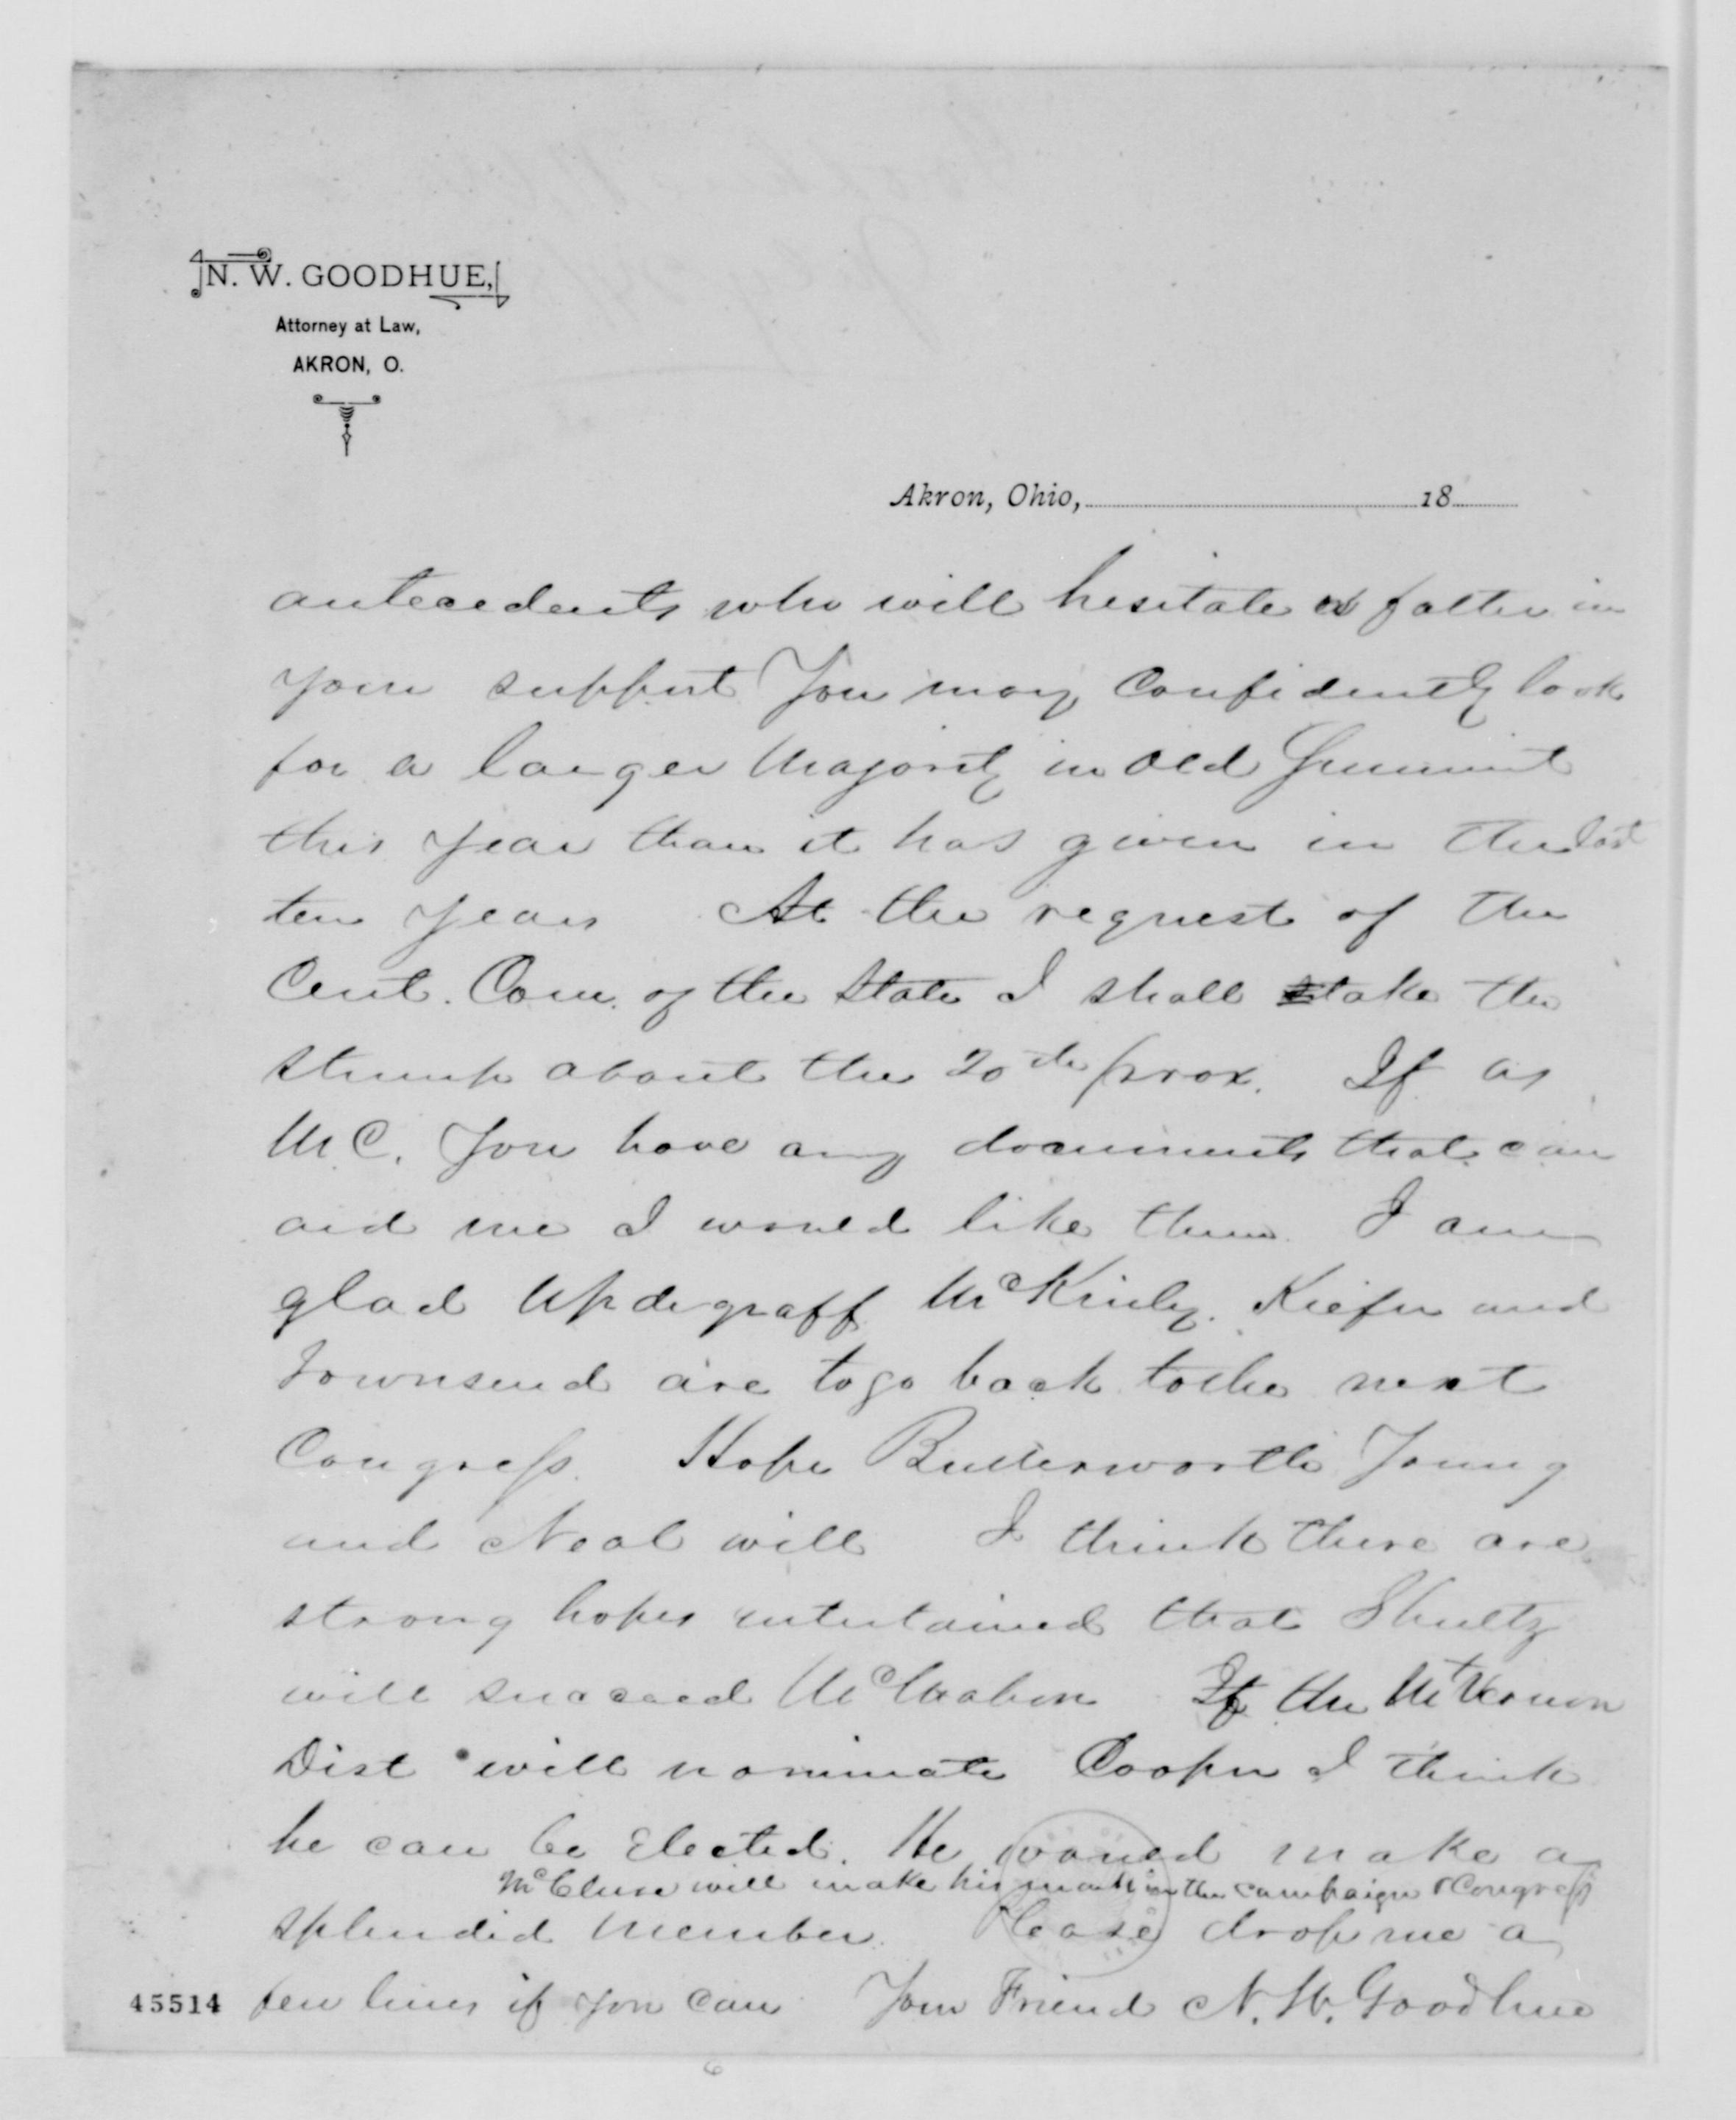 N. W. GOODHUE,
Attorney at Law,
AKRON, O.
Akron, Ohio, 18
antecedents who will hesitate or falter in
your support You may confidently look
for a larger Majority in Old Summit
this year than it has given in the last
ten years At the request of the
Cent. Com. of the State I shall take the
stump about the 20th prox. If as
M.C. You have any documents that can
aid me I would like them. I am
glad Updegraff McKinly. Kiefer and
Townsend are to go back to the next
Congress. Hope Butterworth Young
and Neal will I think there are
strong hopes entertained that Shultz
will succeed McMahon If the Mt Vernon
Dist will nominate Cooper I think
he can be Elected. He would make a
McClure will make his mark in the campaign & Congress
splendid Member. Please drop me a
45514 few lines if you can Your Friend N. W. Goodhue